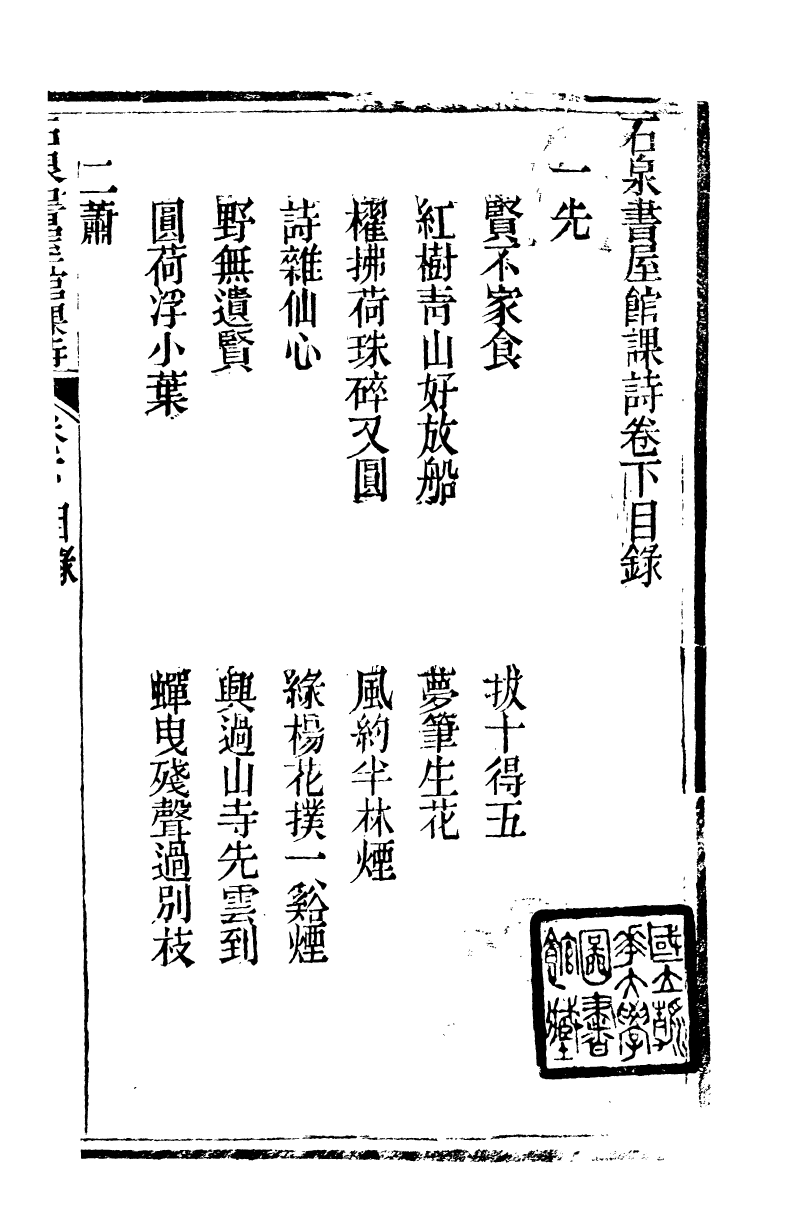 石泉書屋館課詩卷下目錄
一先
賢不家食
拔十得五
紅樹青山好放船
夢筆生花
櫂拂荷珠碎又圓
風約半林煙
詩雜仙心
綠楊花撲一谿煙
野無遺賢
興過山寺先雲到
圓荷浮小葉
蟬曳殘聲過別枝
二蕭
石泉書屋館課詩
卷下
目錄
國立清
華大學
圖書
館藏